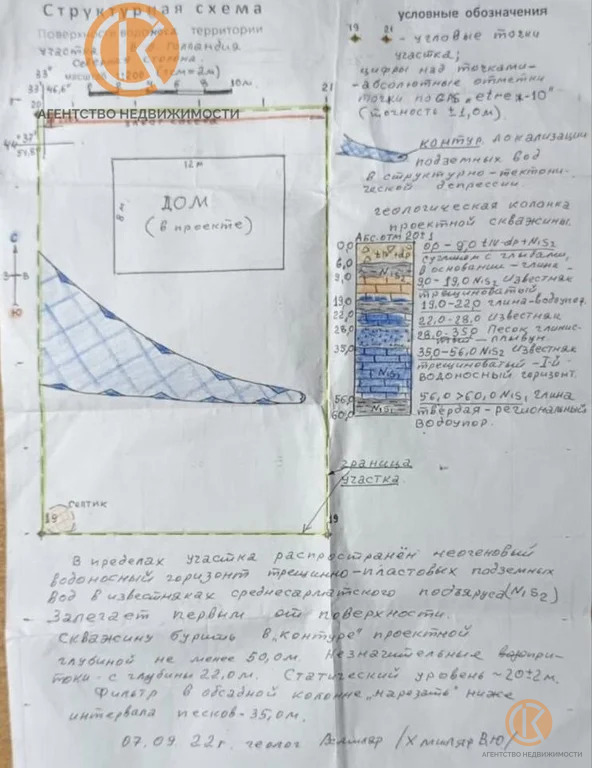 Структурная схема
Поверхности водоной территории
участка Голландия
Северная сторона
33° масштаб 1:200 (1см=2м)
33 46,6"
0 2 4 6 8 10м
20
21
АГЕНТСТВО НЕДВИЖИМОСТИ
44° 37'
51,8"
12 м
8 м
ДОМ
(в проекте)
С
З В
Ю
Септик
19
19
граница
участка
условные обозначения
19 21 - угловые точки
участка;
цифры над точками-
-абсолютные отметки
точки по GPS „etrex-10"
(точность ±1,0м)
контур локализации
подземных вод
в структурно-тектони-
ческой депрессии.
геологическая колонка
проектной скважины.
Абс.отм 20÷21
0,0
6,0
9,0
19,0
22,0
28,0
35,0
56,0
60,0
N1S2
N1S2
N1S1
0,0 - 9,0 tIV-dp+N1S2
суглинк с глыбами,
в основании - глина-
9,0 - 19,0 N1S2 известняк
трещиноватый
19,0-22,0 глина-водоупор.
22,0-28,0 известняк
28,0-35,0 Песок глинис-
тый - плывун.
35,0-56,0 N1S2 известняк
трещиноватый -I-й
водоносный горизонт.
56,0 >60,0 N1S1 глина
твёрдая - региональный
водоупор.
В пределах участка распространён неогеновый
водоносный горизонт трещинно-пластовых подземных
вод в известняках среднесарматского подъяруса (N1S2)
Залегает первым от поверхности.
Скважину бурить в „контуре" проектной
глубиной не менее 50,0м. Незначительные водопри-
токи - с глубины 22,0м. Статический уровень ~20±2м.
Фильтр в обсадной колонне „нарезать" ниже
интервала песков-35,0м.
07.09.22г. геолог /Хмиляр В.Ю/
АГЕНТСТВО НЕДВИЖИМОСТИ